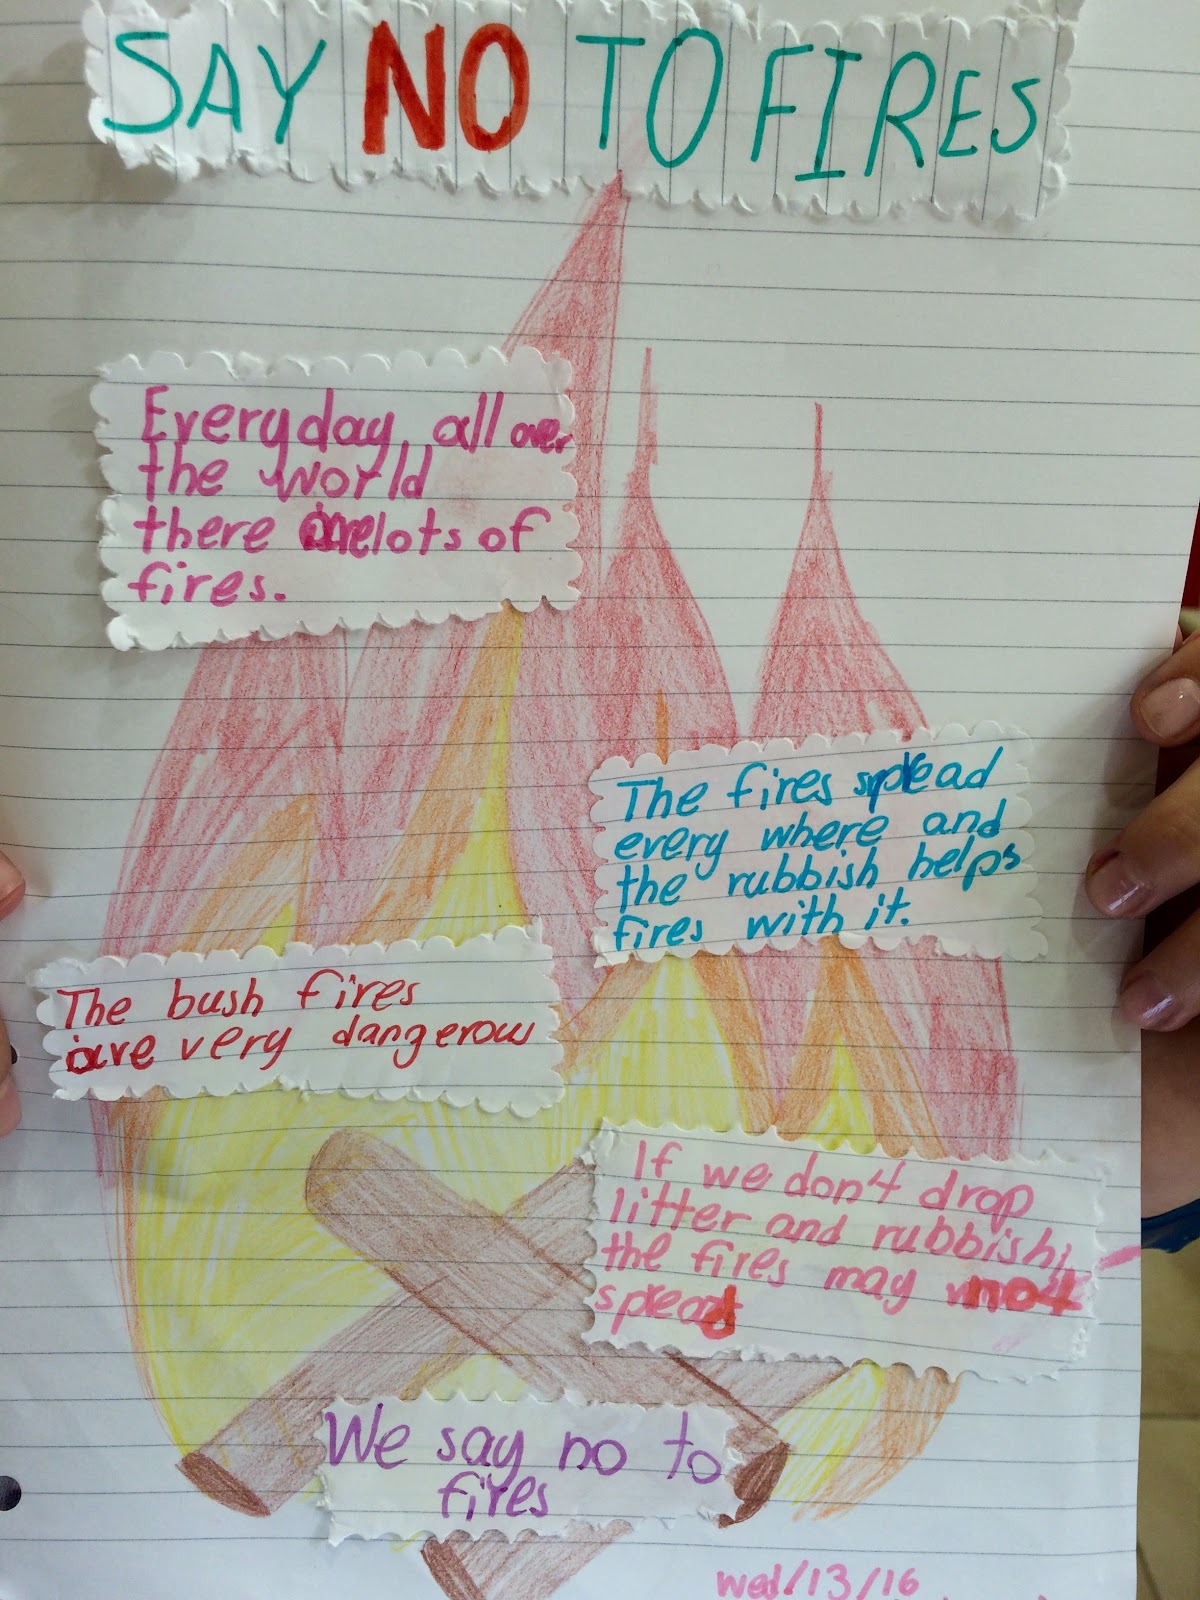 SAY NO TO FIRES
Everyday, all over
the world
there are lots of
fires.
The fires spread
every where and
the rubbish helps
fires with it.
The bush fires
are very dangerous
If we don4 drop
litter and rubbish,
the fires may not
spread
We say no to
fires
wed/13/16